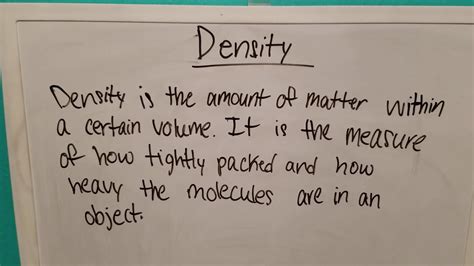 Density
Density is the amount of matter within
a certain volume. It is the measure
of how tightly packed and how
heavy the molecules are in an
object.